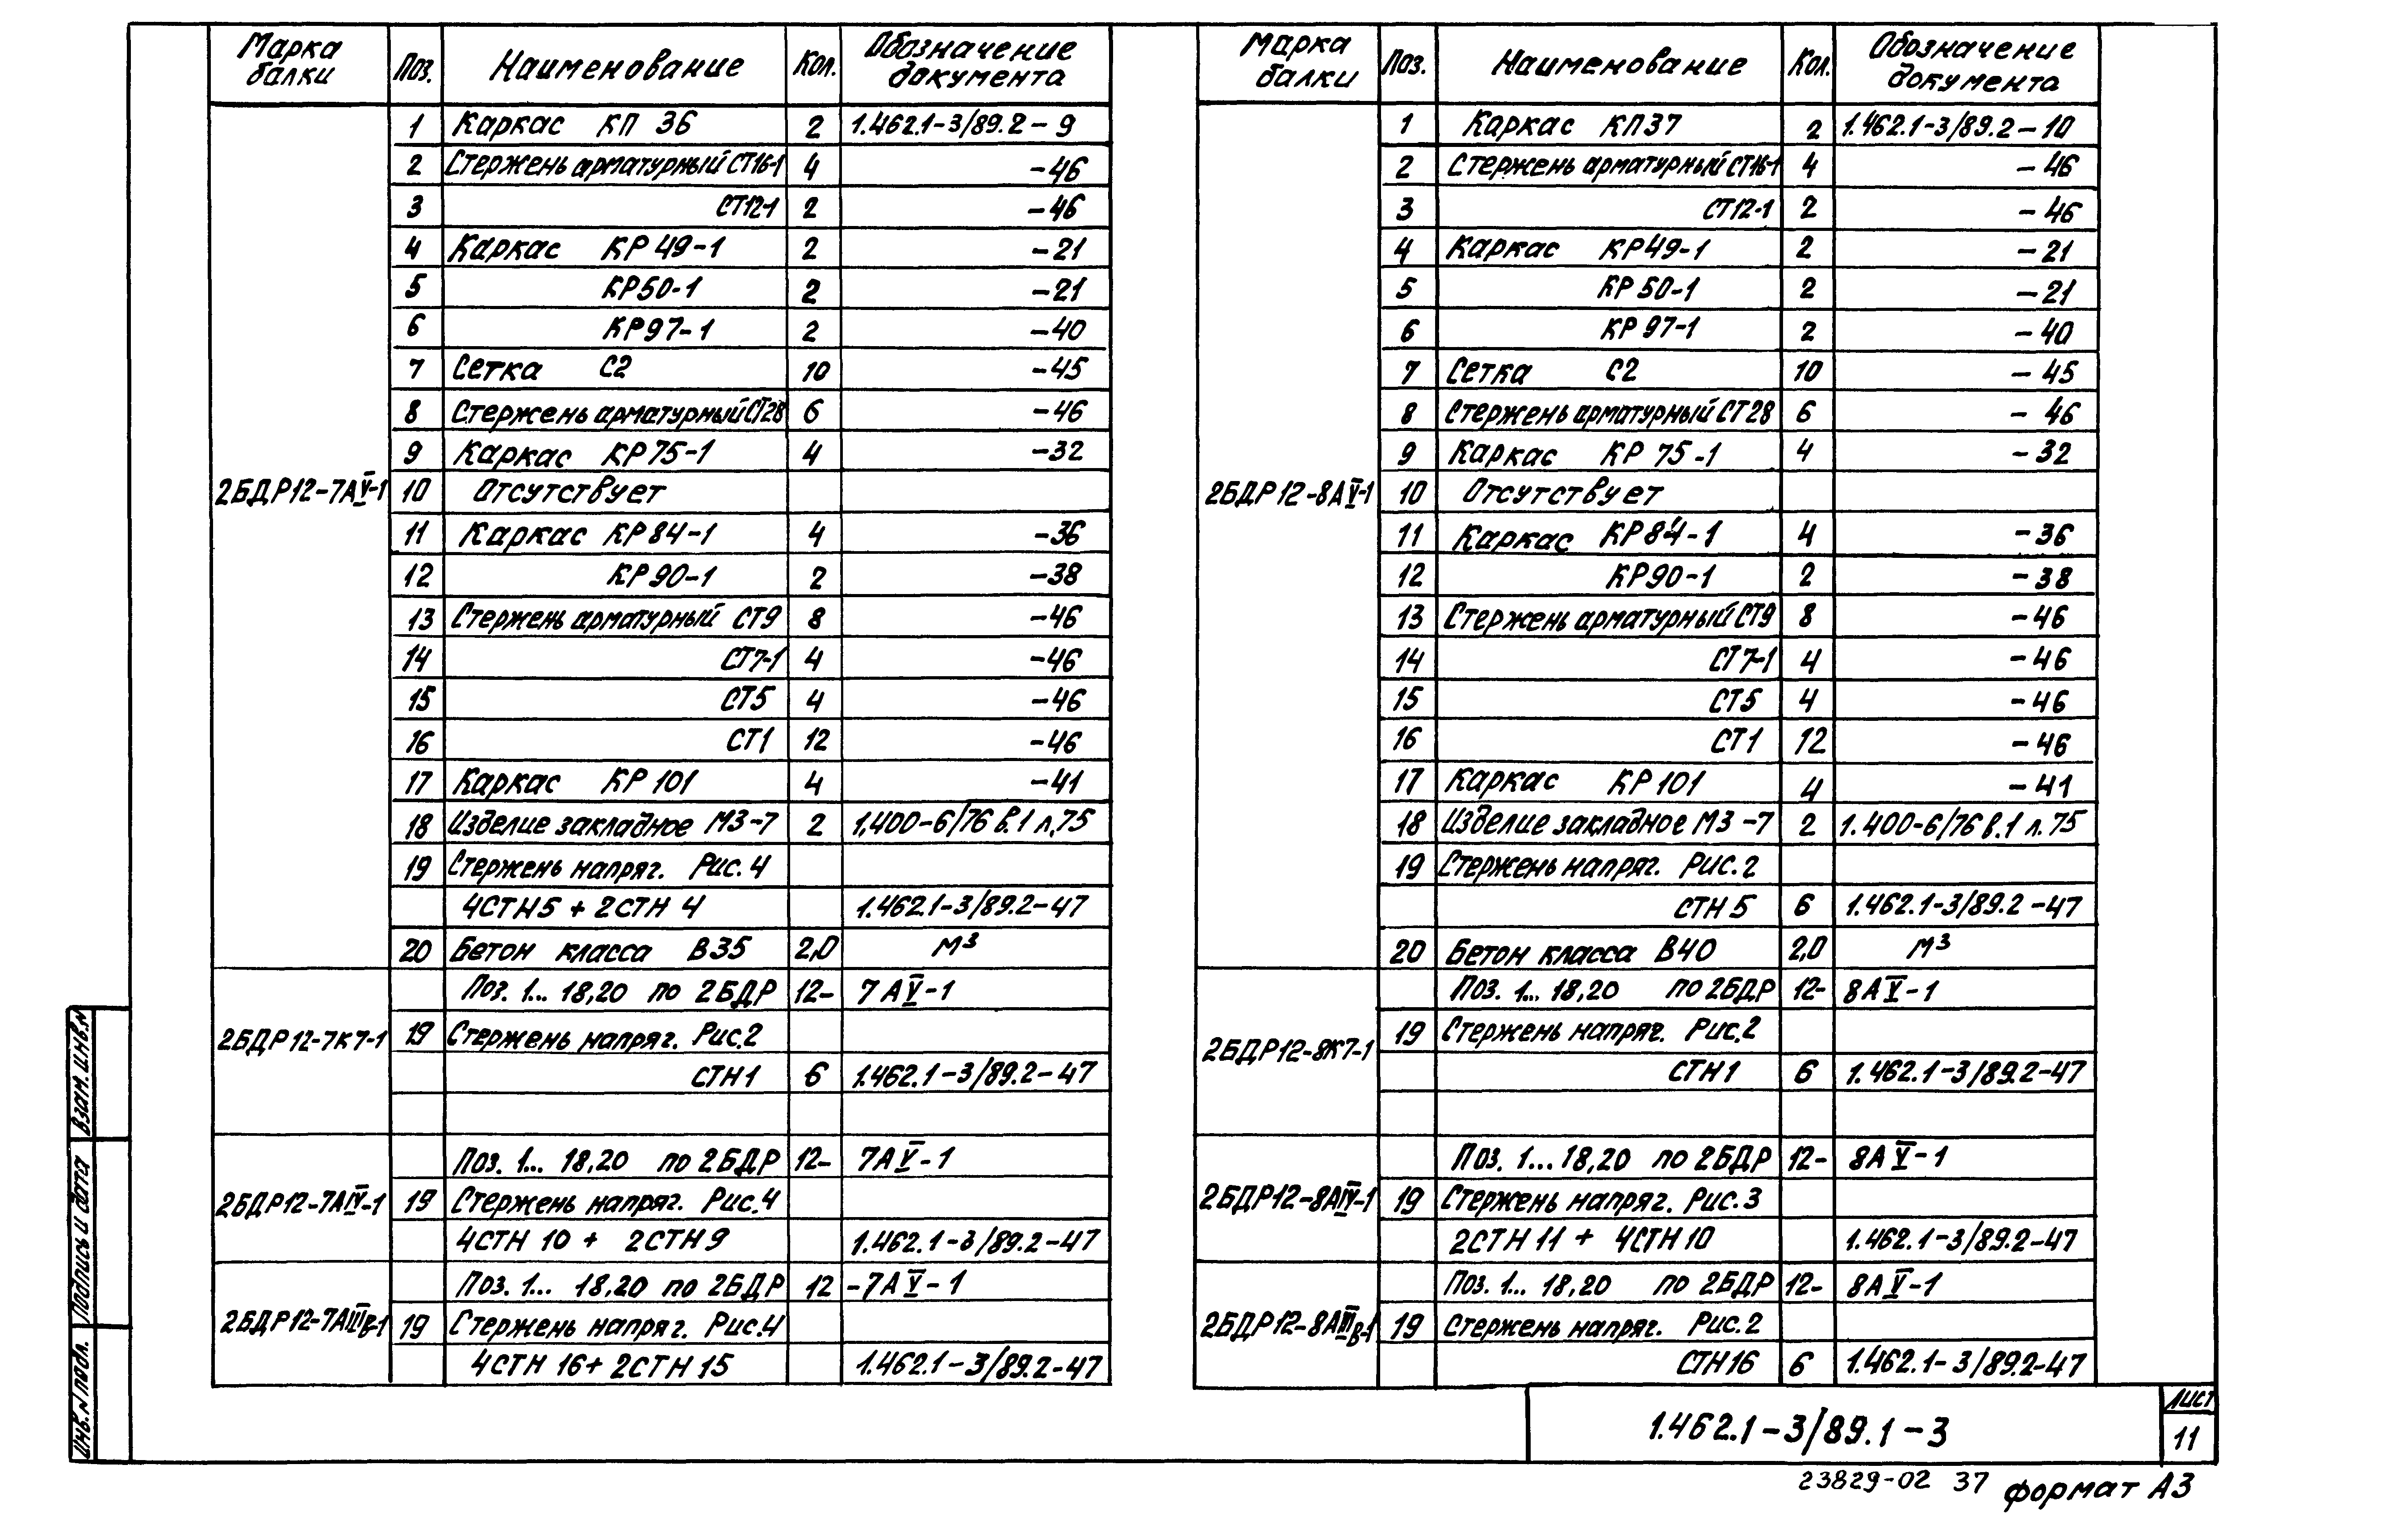 Марка балки Поз. Наименование Кол. Обозначение документа
2БДР12-7АV-1
1 Каркас КП 36 2 1.462.1-3/89.2-9
2 Стержень арматурный СТ16-1 4 -46
3 СТ12-1 2 -46
4 Каркас КР 49-1 2 -21
5 КР50-1 2 -21
6 КР97-1 2 -40
7 Сетка С2 10 -45
8 Стержень арматурный СТ28 6 -46
9 Каркас КР75-1 4 -32
10 Отсутствует
11 Каркас КР84-1 4 -36
12 КР90-1 2 -38
13 Стержень арматурный СТ9 8 -46
14 СТ7-1 4 -46
15 СТ5 4 -46
16 СТ1 12 -46
17 Каркас КР 101 4 -41
18 Изделие закладное МЗ-7 2 1.400-6/76 в.1 л.75
19 Стержень напряг. Рис. 4
4СТН5 + 2СТН 4 1.462.1-3/89.2-47
20 Бетон класса В35 2,0 м³
2БДР12-7К7-1
Поз. 1... 18,20 по 2БДР 12- 7АV-1
19 Стержень напряг. Рис.2
СТН1 6 1.462.1-3/89.2-47
2БДР12-7АIV-1
Поз. 1... 18,20 по 2БДР 12- 7АV-1
19 Стержень напряг. Рис.4
4СТН 10 + 2СТН9 1.462.1-3/89.2-47
2БДР12-7АIIIв-1
Поз. 1... 18,20 по 2БДР 12 -7АV-1
19 Стержень напряг. Рис.4
4СТН 16+ 2СТН 15 1.462.1-3/89.2-47
Марка балки Поз. Наименование Кол. Обозначение документа
2БДР12-8АV-1
1 Каркас КП37 2 1.462.1-3/89.2-10
2 Стержень арматурный СТ16-1 4 -46
3 СТ12-1 2 -46
4 Каркас КР49-1 2 -21
5 КР50-1 2 -21
6 КР 97-1 2 -40
7 Сетка С2 10 -45
8 Стержень арматурный СТ28 6 -46
9 Каркас КР 75-1 4 -32
10 Отсутствует
11 Каркас КР84-1 4 -36
12 КР90-1 2 -38
13 Стержень арматурный СТ9 8 -46
14 СТ7-1 4 -46
15 СТ5 4 -46
16 СТ1 12 -46
17 Каркас КР 101 4 -41
18 Изделие закладное МЗ-7 2 1.400-6/76 в.1 л.75
19 Стержень напряг. Рис.2
СТН 5 6 1.462.1-3/89.2-47
20 Бетон класса В40 2,0 м³
2БДР12-8К7-1
Поз. 1... 18,20 по 2БДР 12- 8АV-1
19 Стержень напряг. Рис.2
СТН1 6 1.462.1-3/89.2-47
2БДР12-8АIV-1
Поз. 1... 18,20 по 2БДР 12- 8АV-1
19 Стержень напряг. Рис.3
2СТН 11 + 4СТН 10 1.462.1-3/89.2-47
2БДР12-8АIIIв-1
Поз. 1... 18,20 по 2БДР 12- 8АV-1
19 Стержень напряг. Рис.2
СТН16 6 1.462.1-3/89.2-47
Взам.инв.№
Подпись и дата
Инв.№ подл.
1.462.1-3/89.1-3
Лист
11
23829-02 37 формат А3